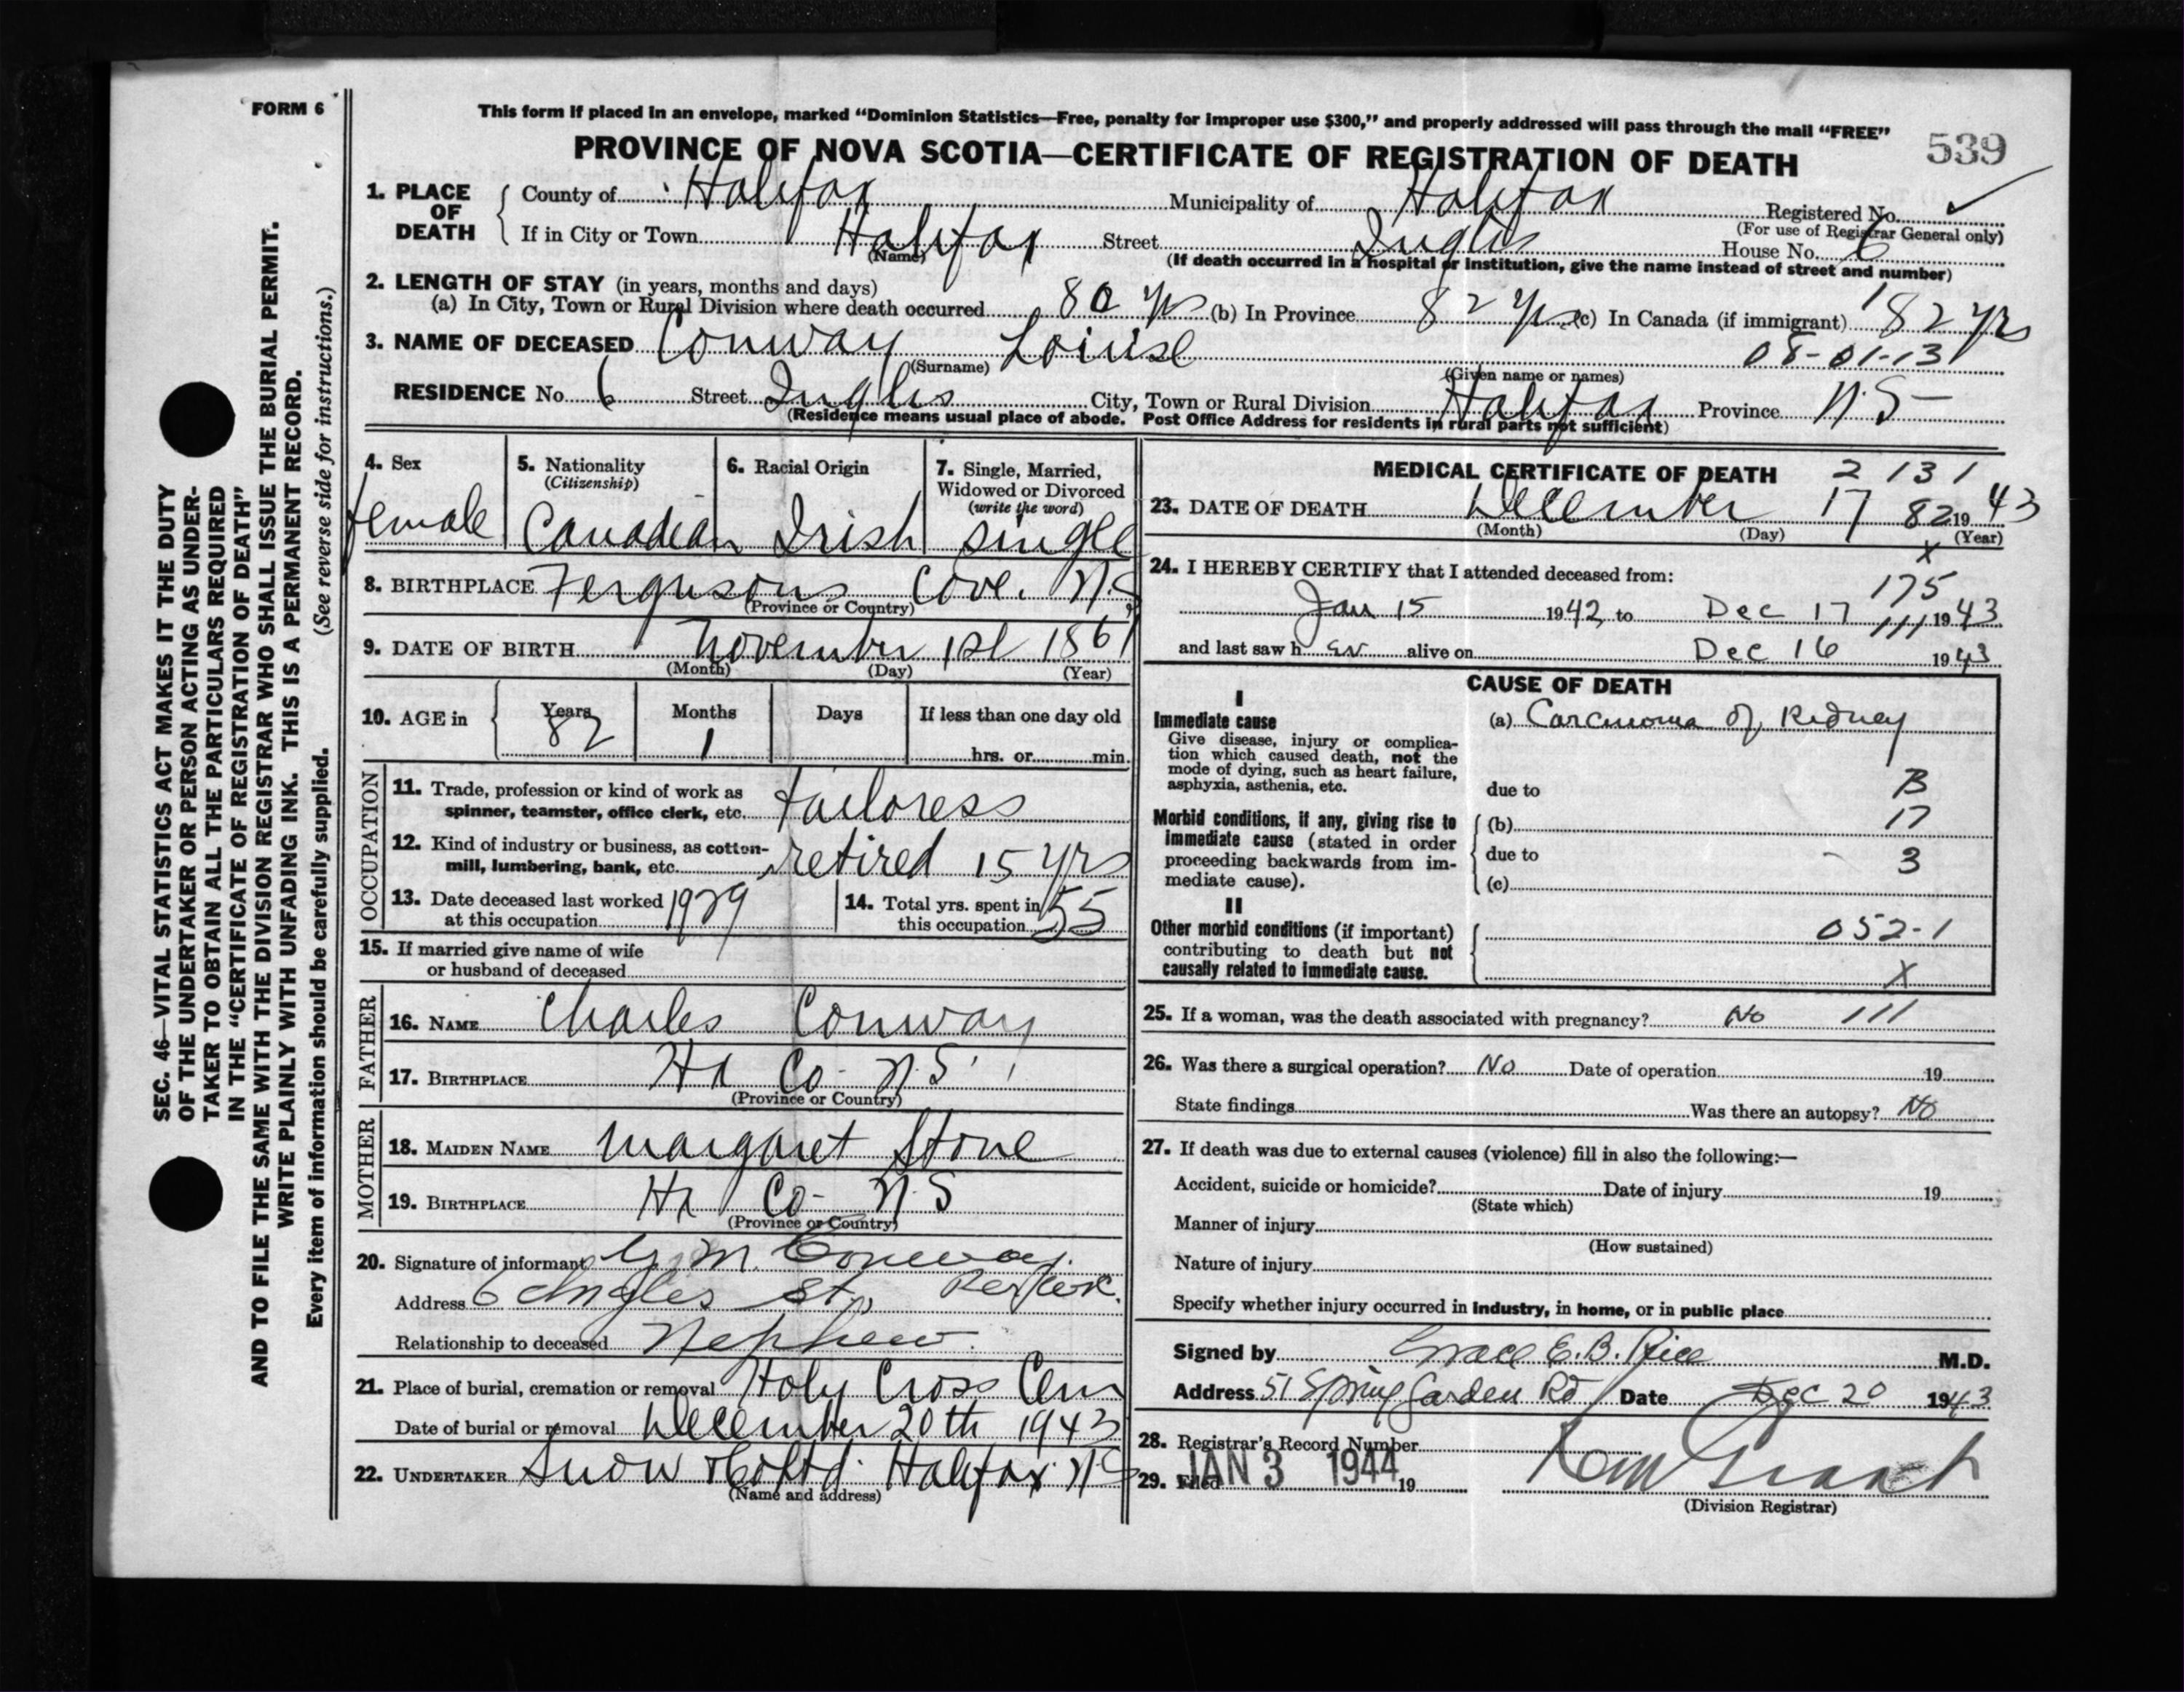 FORM 6
This form if placed in an envelope, marked “Dominion Statistics—Free, penalty for improper use $300,” and properly addressed will pass through the mail “FREE”
PROVINCE OF NOVA SCOTIA—CERTIFICATE OF REGISTRATION OF DEATH
539
1. PLACE OF DEATH
County of Halifax Municipality of Halifax Registered No.
(For use of Registrar General only)
If in City or Town Halifax Street Inglis House No. 6
(Name) (If death occurred in a hospital or institution, give the name instead of street and number)
2. LENGTH OF STAY (in years, months and days)
(a) In City, Town or Rural Division where death occurred 80 yrs (b) In Province 82 yrs (c) In Canada (if immigrant) 82 yrs
3. NAME OF DECEASED Conway Louise 08-01-13
(Surname) (Given name or names)
RESIDENCE No. 6 Street Inglis City, Town or Rural Division Halifax Province N.S
(Residence means usual place of abode. Post Office Address for residents in rural parts not sufficient)
4. Sex
female
5. Nationality
(Citizenship)
Canadian
6. Racial Origin
Irish
7. Single, Married,
Widowed or Divorced
(write the word)
single
8. BIRTHPLACE Fergusons Cove. N.S
(Province or Country)
9. DATE OF BIRTH November 1st 1861
(Month) (Day) (Year)
10. AGE in
Years
82
Months
1
Days
If less than one day old
hrs. or min.
OCCUPATION
11. Trade, profession or kind of work as
spinner, teamster, office clerk, etc. tailoress
12. Kind of industry or business, as cotton-
mill, lumbering, bank, etc. retired 15 yrs
13. Date deceased last worked
at this occupation 1929
14. Total yrs. spent in
this occupation 55
15. If married give name of wife
or husband of deceased
FATHER
16. NAME Charles Conway
17. BIRTHPLACE Hx Co- N.S
(Province or Country)
MOTHER
18. MAIDEN NAME Margaret Stone
19. BIRTHPLACE Hx Co- N.S
(Province or Country)
20. Signature of informant G. M. Conway.
Address 6 Inglis St.,
Relationship to deceased Nephew.
21. Place of burial, cremation or removal Holy Cross Cem
Date of burial or removal December 20th 1943
22. UNDERTAKER Snow & Co Ltd. Halifax NS
(Name and address)
MEDICAL CERTIFICATE OF DEATH 2 131
23. DATE OF DEATH December 17 82 1943
(Month) (Day) (Year)
x
24. I HEREBY CERTIFY that I attended deceased from:
175
Jan 15 1942, to Dec 17 1943
111
and last saw her alive on Dec 16 1943
CAUSE OF DEATH
I
Immediate cause
Give disease, injury or complica-
tion which caused death, not the
mode of dying, such as heart failure,
asphyxia, asthenia, etc.
(a) Carcinoma of Kidney
due to B
Morbid conditions, if any, giving rise to
immediate cause (stated in order
proceeding backwards from im-
mediate cause).
(b) 17
due to 3
(c)
II
Other morbid conditions (if important)
contributing to death but not
causally related to immediate cause.
052-1
X
25. If a woman, was the death associated with pregnancy? No 111
26. Was there a surgical operation? No Date of operation 19
State findings Was there an autopsy? No
27. If death was due to external causes (violence) fill in also the following:—
Accident, suicide or homicide? Date of injury 19
(State which)
Manner of injury
(How sustained)
Nature of injury
Specify whether injury occurred in industry, in home, or in public place
Signed by Grace E. B. Rice M.D.
Address 51 Spring Garden Rd Date Dec 20 1943
28. Registrar's Record Number
29. Filed JAN 3 1944 19
(Division Registrar)
SEC. 46—VITAL STATISTICS ACT MAKES IT THE DUTY
OF THE UNDERTAKER OR PERSON ACTING AS UNDER-
TAKER TO OBTAIN ALL THE PARTICULARS REQUIRED
IN THE “CERTIFICATE OF REGISTRATION OF DEATH”
AND TO FILE THE SAME WITH THE DIVISION REGISTRAR WHO SHALL ISSUE THE BURIAL PERMIT.
WRITE PLAINLY WITH UNFADING INK. THIS IS A PERMANENT RECORD.
Every item of information should be carefully supplied. (See reverse side for instructions.)